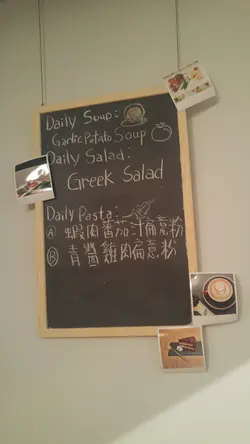 Daily Soup:
Garlic Potato Soup
Daily Salad:
Greek Salad
Daily Pasta:
Ⓐ 蝦肉蕃茄汁扁意粉
Ⓑ 青醬雞肉扁意粉